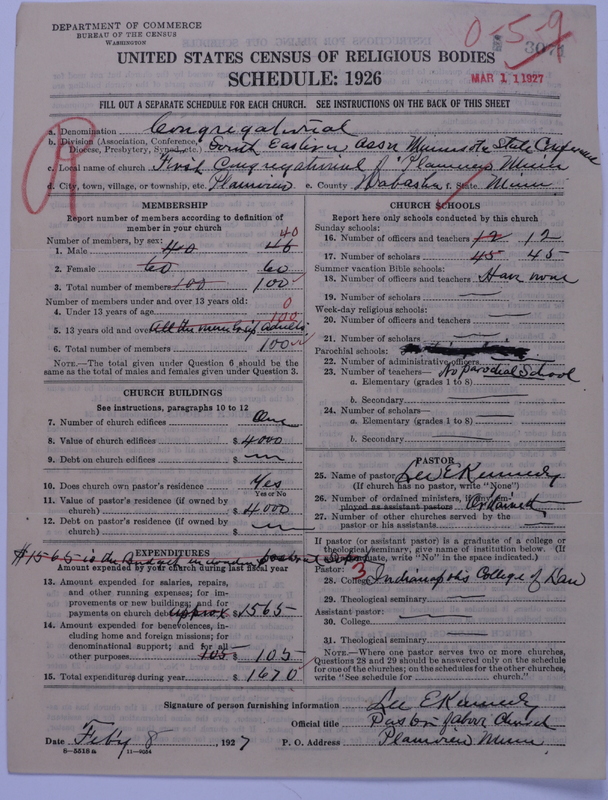 DEPARTMENT OF COMMERCE
BUREAU OF THE CENSUS
WASHINGTON
0-5-9
307
MAR 11 1927
UNITED STATES CENSUS OF RELIGIOUS BODIES
SCHEDULE: 1926
FILL OUT A SEPARATE SCHEDULE FOR EACH CHURCH. SEE INSTRUCTIONS ON THE BACK OF THIS SHEET
R
a. Denomination Congregational
b. Division (Association, Conference, Diocese, Presbytery, Synod, etc.) South Eastern Assn Minnesota State Conference
c. Local name of church First Congregational of Plainview Minn
d. City, town, village, or township, etc. Plainview e. County Wabasha f. State Minn
MEMBERSHIP
Report number of members according to definition of
member in your church
Number of members, by sex:
40
1. Male 40 46
2. Female 60 60
3. Total number of members 100 100
Number of members under and over 13 years old:
4. Under 13 years of age 0
5. 13 years old and over All the members adults 100
6. Total number of members 100
NOTE.—The total given under Question 6 should be the
same as the total of males and females given under Question 3.
CHURCH BUILDINGS
See instructions, paragraphs 10 to 12
7. Number of church edifices One
8. Value of church edifices $ 4000
9. Debt on church edifices $
10. Does church own pastor's residence? Yes
Yes or No
11. Value of pastor's residence (if owned by
church) $ 4000
12. Debt on pastor's residence (if owned by
church) $
EXPENDITURES
$1565 is the
Amount expended by your church during last fiscal year
13. Amount expended for salaries, repairs,
and other running expenses; for im-
provements or new buildings; and for
payments on church debt approx $ 1565
14. Amount expended for benevolences, in-
cluding home and foreign missions; for
denominational support; and for all
other purposes 105 $ 105
15. Total expenditures during year $ 1670
CHURCH SCHOOLS
Report here only schools conducted by this church
Sunday schools:
16. Number of officers and teachers 12 12
17. Number of scholars 45 45
Summer vacation Bible schools:
18. Number of officers and teachers Have none
19. Number of scholars
Week-day religious schools:
20. Number of officers and teachers
21. Number of scholars
Parochial schools:
22. Number of administrative officers
23. Number of teachers— No Parodial School
a. Elementary (grades 1 to 8)
b. Secondary
24. Number of scholars—
a. Elementary (grades 1 to 8)
b. Secondary
PASTOR
25. Name of pastor Lee E Kennedy
(If church has no pastor, write "None")
26. Number of ordained ministers, if any, em-
ployed as assistant pastors
27. Number of other churches served by the
pastor or his assistants
If pastor (or assistant pastor) is a graduate of a college or
theological seminary, give name of institution below. (If
not a graduate, write "No" in the space indicated.)
Pastor: 3
28. College Indianapolis College of Law
29. Theological seminary
Assistant pastor:
30. College
31. Theological seminary
NOTE.—Where one pastor serves two or more churches,
Questions 28 and 29 should be answered only on the schedule
for one of the churches; on the schedules for the other churches,
write "See schedule for church."
Signature of person furnishing information Lee E Kennedy
Official title Pastor of above Church
Date Feby 8, 1927 P. O. Address Plainview Minn
8-5518a 11-9034